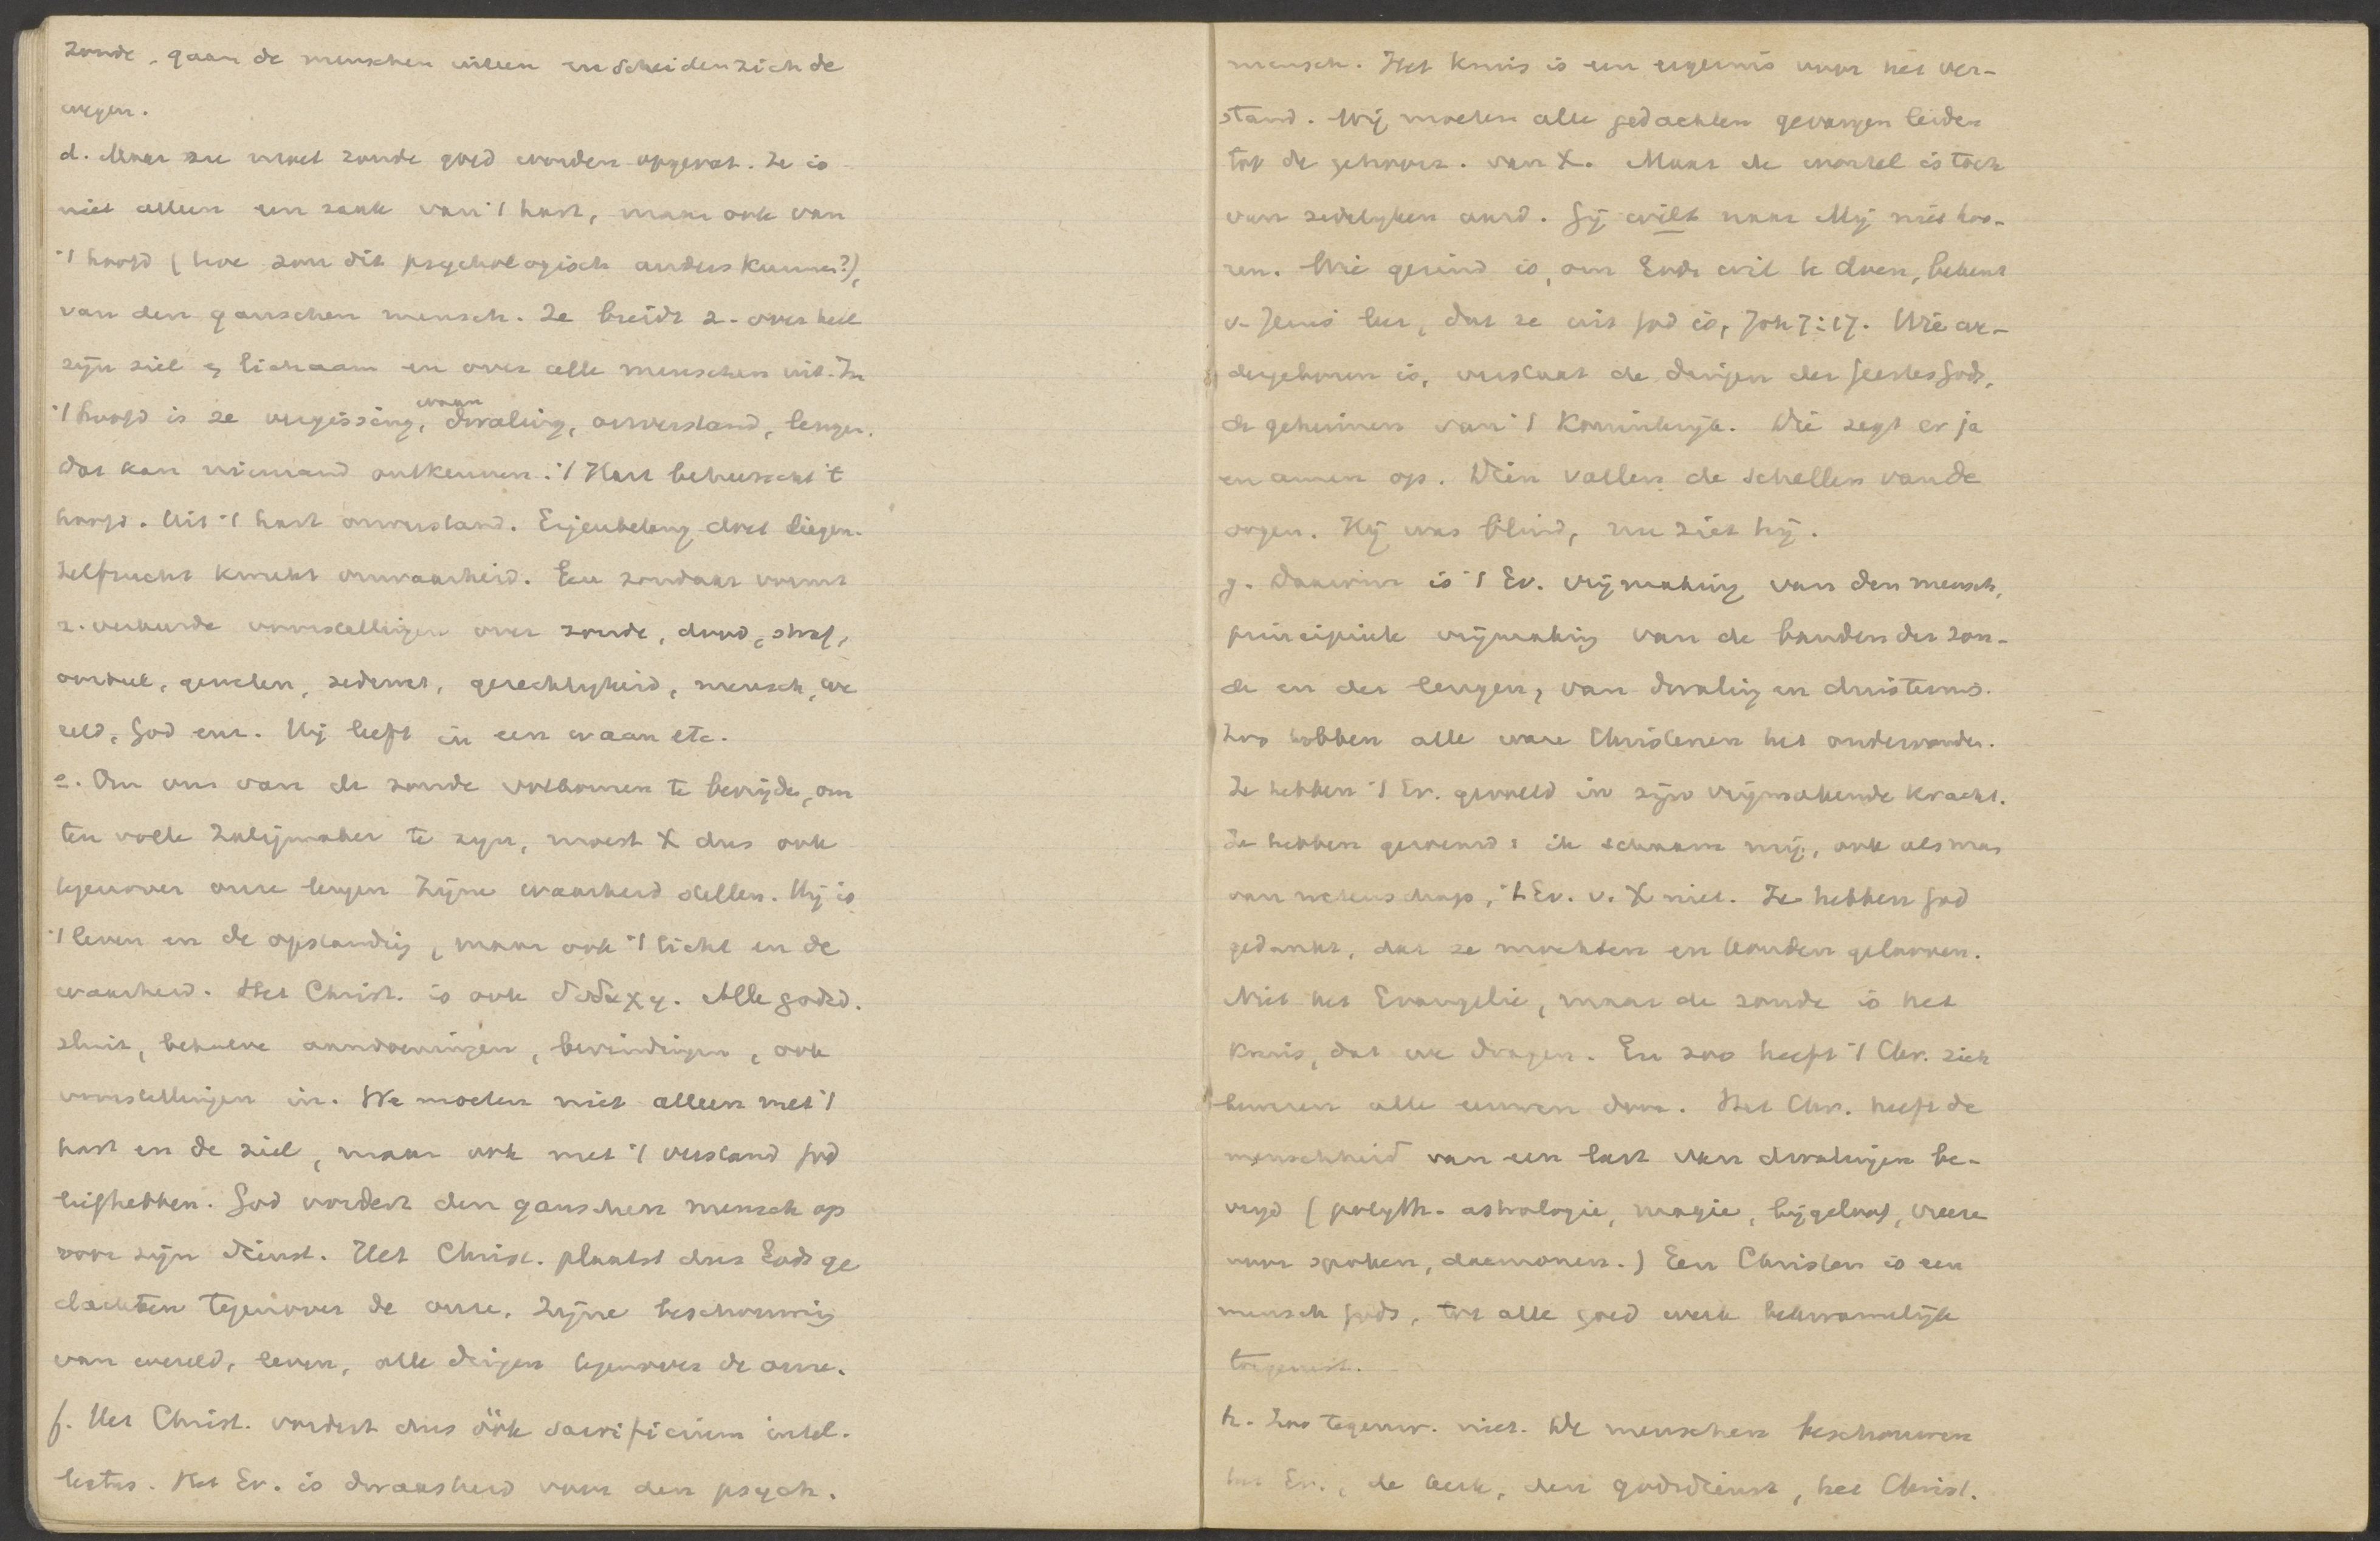 zonde, gaan de menschen uiteen en scheiden zich de
wegen.
d. Maar nu moet zonde goed worden opgevat. Ze is
niet alleen een zaak van 't hart, maar ook van
't hoofd (hoe zou dit psychologisch anders kunnen?),
van den ganschen mensch. Ze breidt z. over heel
zijn ziel & lichaam en over alle menschen uit. In
't hoofd is ze vergissing, waan, dwaling, onverstand, leugen.
dat kan niemand ontkennen. 't Hart beheerscht 't
hoofd. Uit 't hart onverstand. Eigenbelang doet liegen.
Zelfzucht kweekt onwaarheid. Een zondaar vormt
z. verkeerde voorstellingen over zonde, dood, straf,
oordeel, geweten, zedewet, gerechtigheid, mensch, we
reld, God enz. Hij leeft in een waan etc.
e. Om ons van de zonde volkomen te bevrijden, om
ten volle Zaligmaker te zijn, moest X dus ook
tegenover onze leugen Zijne waarheid stellen. Hij is
't leven en de opstanding, maar ook 't licht en de
waarheid. Het Christ. is ook διδαχη. Alle godsd.
sluit, behalve aandoeningen, bevindingen, ook
voorstellingen in. We moeten niet alleen met 't
hart en de ziel, maar ook met 't verstand God
liefhebben. God vordert den ganschen mensch op
voor zijn dienst. Het Christ. plaatst dus Gods ge
dachten tegenover de onze. Zijne beschouwing
van wereld, leven, alle dingen tegenover de onze.
f. Het Christ. vordert dus óók sacrificium intel-
lectus. Het Ev. is dwaasheid voor den psych.
mensch. Het kruis is een ergernis voor het ver-
stand. Wij moeten alle gedachten gevangen leiden
tot de gehoorz. van X. Maar de wortel is toch
van zedelijken aard. Gij wilt naar Mij niet hoo-
ren. Wie gezind is, om Gods wil te doen, bekent
v. Jezus' leer, dat ze uit God is, Joh 7:17. Wie we-
dergeboren is, verstaat de dingen des Geestes Gods,
de geheimen van 't Koninkrijk. Die zegt er ja
en amen op. Dien vallen de schellen van de
oogen. Hij was blind, nu ziet hij.
g. Daarom is 't Ev. vrijmaking van den mensch,
principieele vrijmaking van de banden der zon-
de en der leugen, van dwaling en duisternis.
Zoo hebben alle ware Christenen het ondervonden.
Ze hebben 't Ev. gevoeld in zijn vrijmakende kracht.
Ze hebben geroemd: ik schaam mij, ook als man
van wetenschap, 't Ev. v. X niet. Ze hebben God
gedankt, dat ze mochten en konden gelooven.
Niet het Evangelie, maar de zonde is het
kruis, dat we dragen. En zoo heeft 't Chr. zich
bewezen alle eeuwen door. Het Chr. heeft de
menschheid van een last van dwalingen be-
vrijd (polyth. astrologie, magie, bijgeloof, vreeze
voor spoken, daemonen.) Een Christen is een
mensch Gods, tot alle goed werk bekwamelijk
toegerust.
h. Zoo tegenw. niet. De menschen beschouwen
het Ev., de kerk, den godsdienst, het Christ.